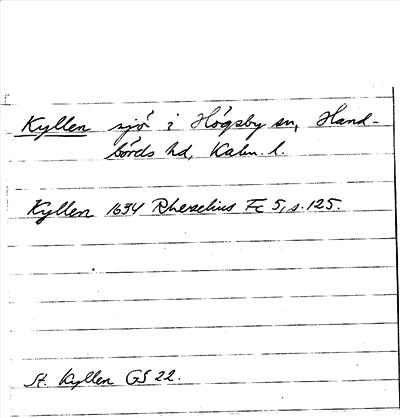 Kyllen sjö i Högsby sn, Hand-
börds hd, Kalm. l.
Kyllen 1634 Rhezelius Fc 5, s. 125.
St. Kyllen GS 22.